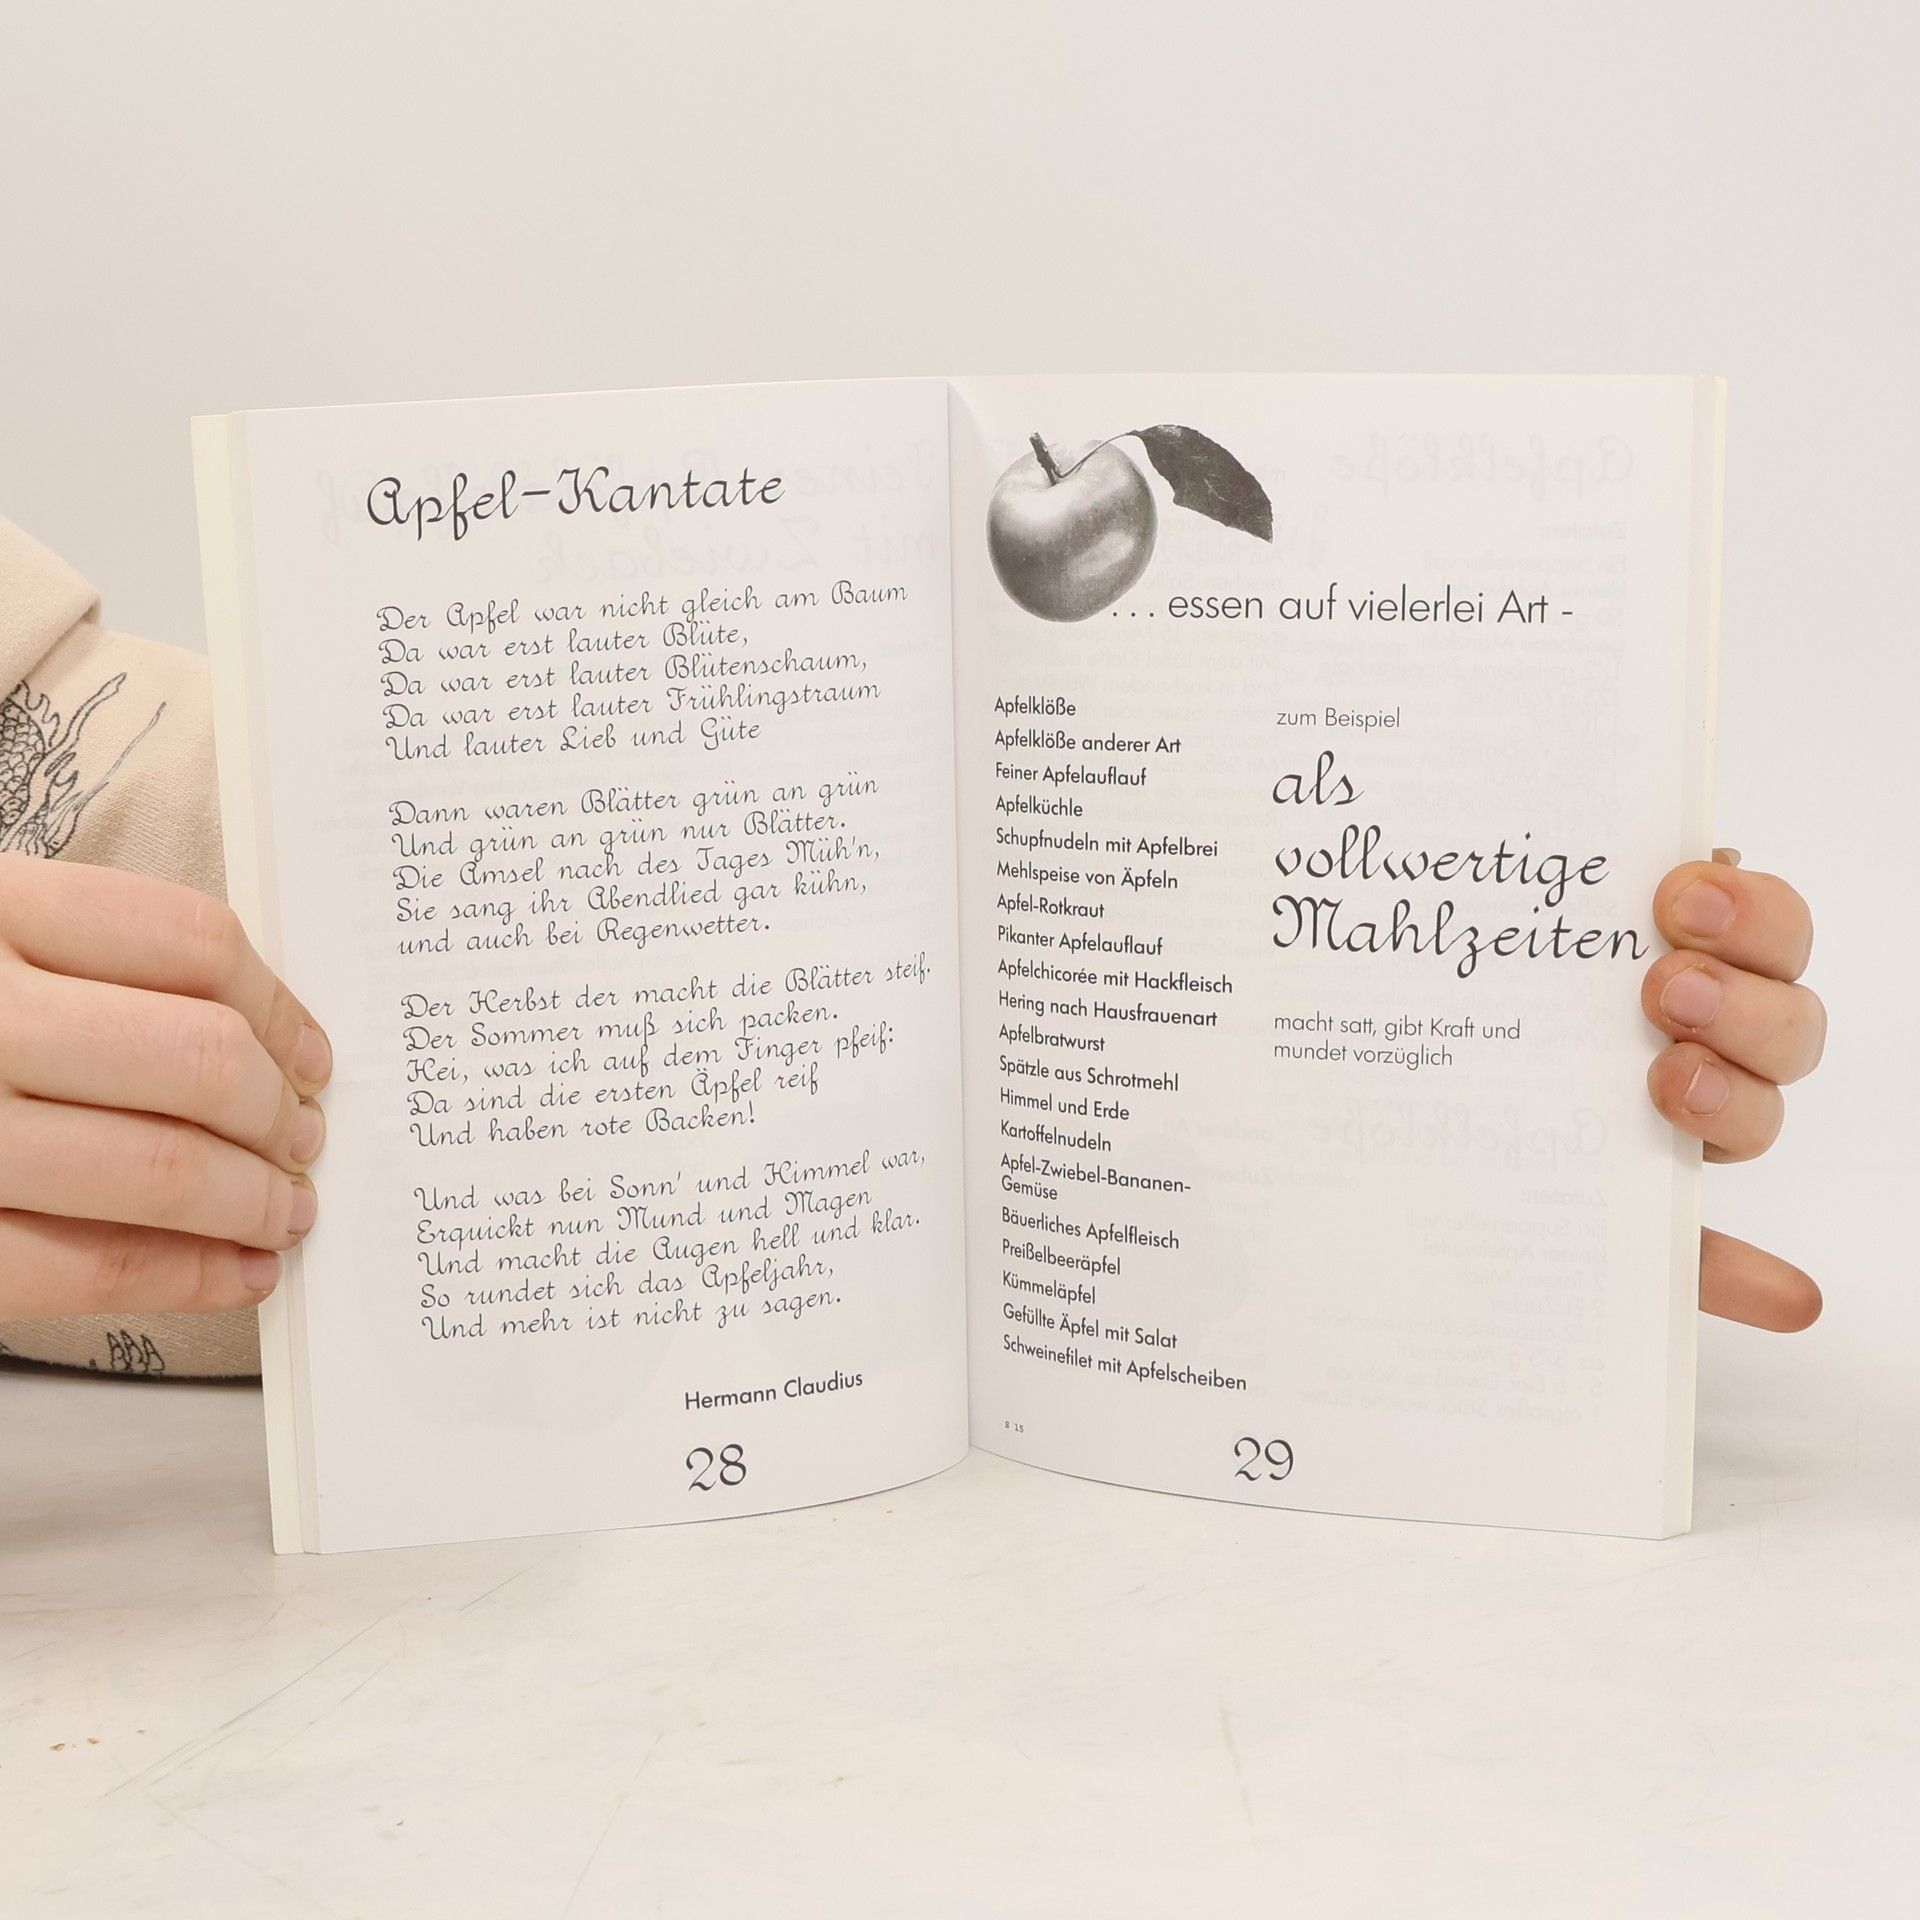 Apfel-Kantate
Der Apfel war nicht gleich am Baum
Da war erst lauter Blüte,
Da war erst lauter Blütenschaum,
Da war erst lauter Frühlingstraum
Und lauter Lieb und Güte
Dann waren Blätter grün an grün
Und grün an grün nur Blätter.
Die Amsel nach des Tages Müh'n,
Sie sang ihr Abendlied gar kühn,
und auch bei Regenwetter.
Der Herbst der macht die Blätter steif.
Der Sommer muß sich packen.
Hei, was ich auf dem Finger pfeif:
Da sind die ersten Äpfel reif
Und haben rote Backen!
Und was bei Sonn' und Himmel war,
Erquickt nun Mund und Magen
Und macht die Augen hell und klar.
So rundet sich das Apfeljahr,
Und mehr ist nicht zu sagen.
Hermann Claudius
28
. . . essen auf vielerlei Art -
Apfelklöße
Apfelklöße anderer Art
Feiner Apfelauflauf
Apfelküchle
Schupfnudeln mit Apfelbrei
Mehlspeise von Äpfeln
Apfel-Rotkraut
Pikanter Apfelauflauf
Apfelchicorée mit Hackfleisch
Hering nach Hausfrauenart
Apfelbratwurst
Spätzle aus Schrotmehl
Himmel und Erde
Kartoffelnudeln
Apfel-Zwiebel-Bananen-
Gemüse
Bäuerliches Apfelfleisch
Preißelbeeräpfel
Kümmeläpfel
Gefüllte Äpfel mit Salat
Schweinefilet mit Apfelscheiben
zum Beispiel
als
vollwertige
Mahlzeiten
macht satt, gibt Kraft und
mundet vorzüglich
8 15
29